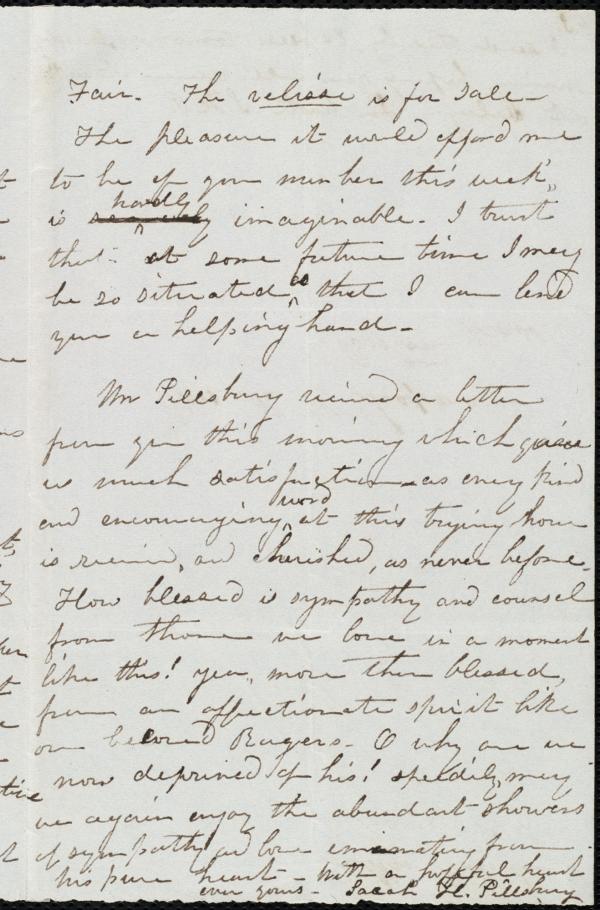 Fair. The velisse is for Sale—
The pleasure it would afford me
to be of your number this week,
is scarcely hardly imaginable. I trust
that at some future time I may
be so situated as that I can lend
you a helping hand—
Mr Pillsbury received a letter
from you this morning which gives
us much satisfaction—as every kind
and encouraging word at this trying hour
is received, and cherished, as never before.
How blessed is sympathy and counsel
from those we love in a moment
like this! yea, more than blessed,
from an affectionate spirit like
our beloved Rogers. O why are we
now deprived of his! speedily may
we again enjoy the abundant showers
of sympathy and love emanating from
his pure heart— With a hopeful heart
ever yours— Sarah H. Pillsbury